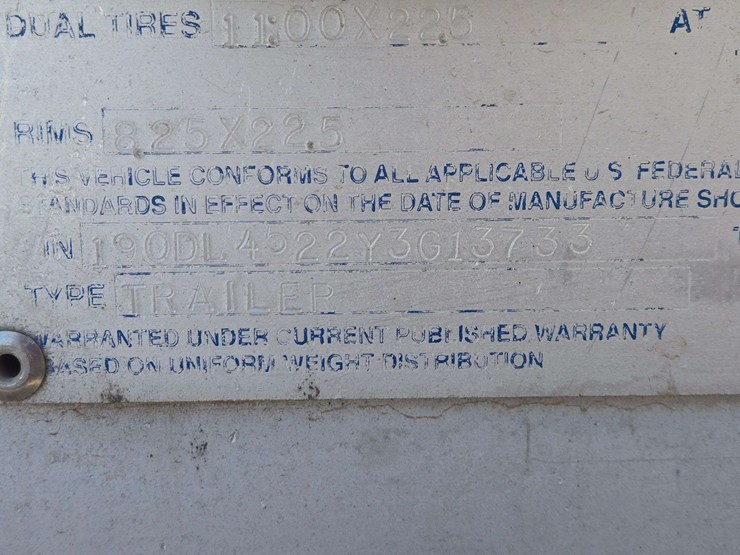 DUAL TIRES 11:00X225 AT
RIMS 825X225
THIS VEHICLE CONFORMS TO ALL APPLICABLE U S FEDERAL
STANDARDS IN EFFECT ON THE DATE OF MANUFACTURE SHO
VIN 190DL4522Y3G13733
TYPE TRAILER
WARRANTED UNDER CURRENT PUBLISHED WARRANTY
BASED ON UNIFORM WEIGHT DISTRIBUTION